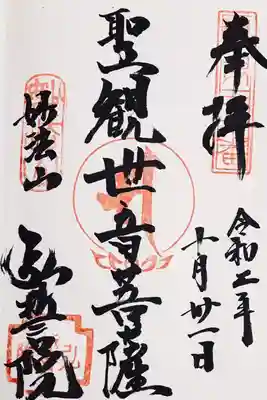 奉拝
令和二年
十月廿一日
聖観世音菩薩
妙法山
院